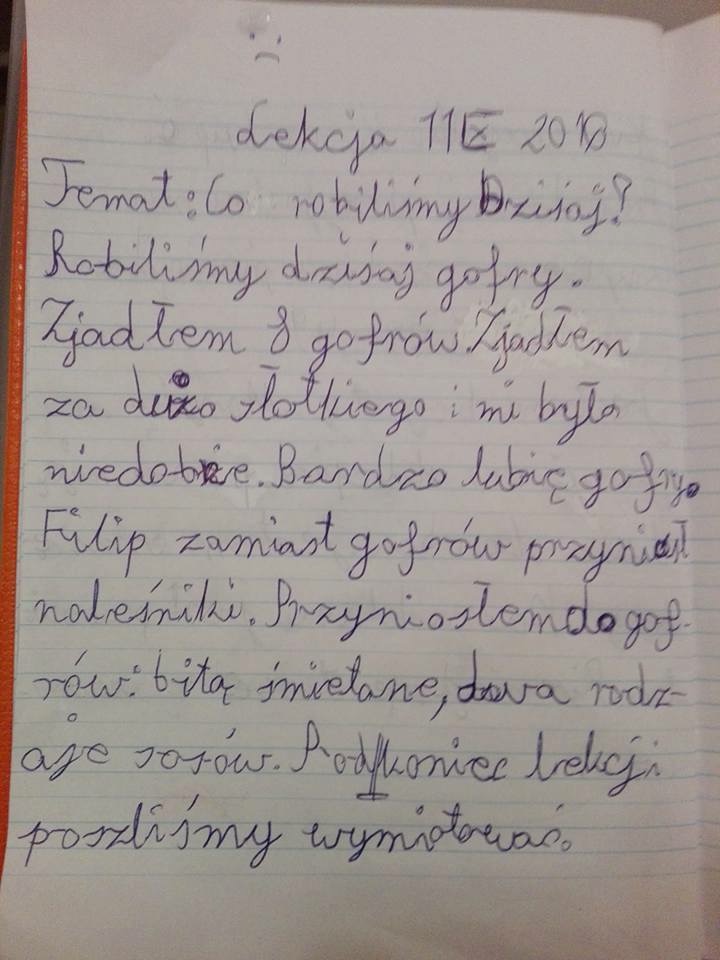 Lekcja 11 IX 2018
Temat: Co robiliśmy Dzisiaj?
Robiliśmy dziśaj gofry.
Zjadłem 8 gofrów. Zjadłem
za dużo słotkiego i mi było
niedobrze. Bardzo lubię gofry.
Filip zamiast gofrów przyniusł
naleśniki. Przyniosłem do gof-
rów: bitą śmietane, dwa rodz-
aje sosów. Pod koniec lekcji
poszliśmy wymiotować.